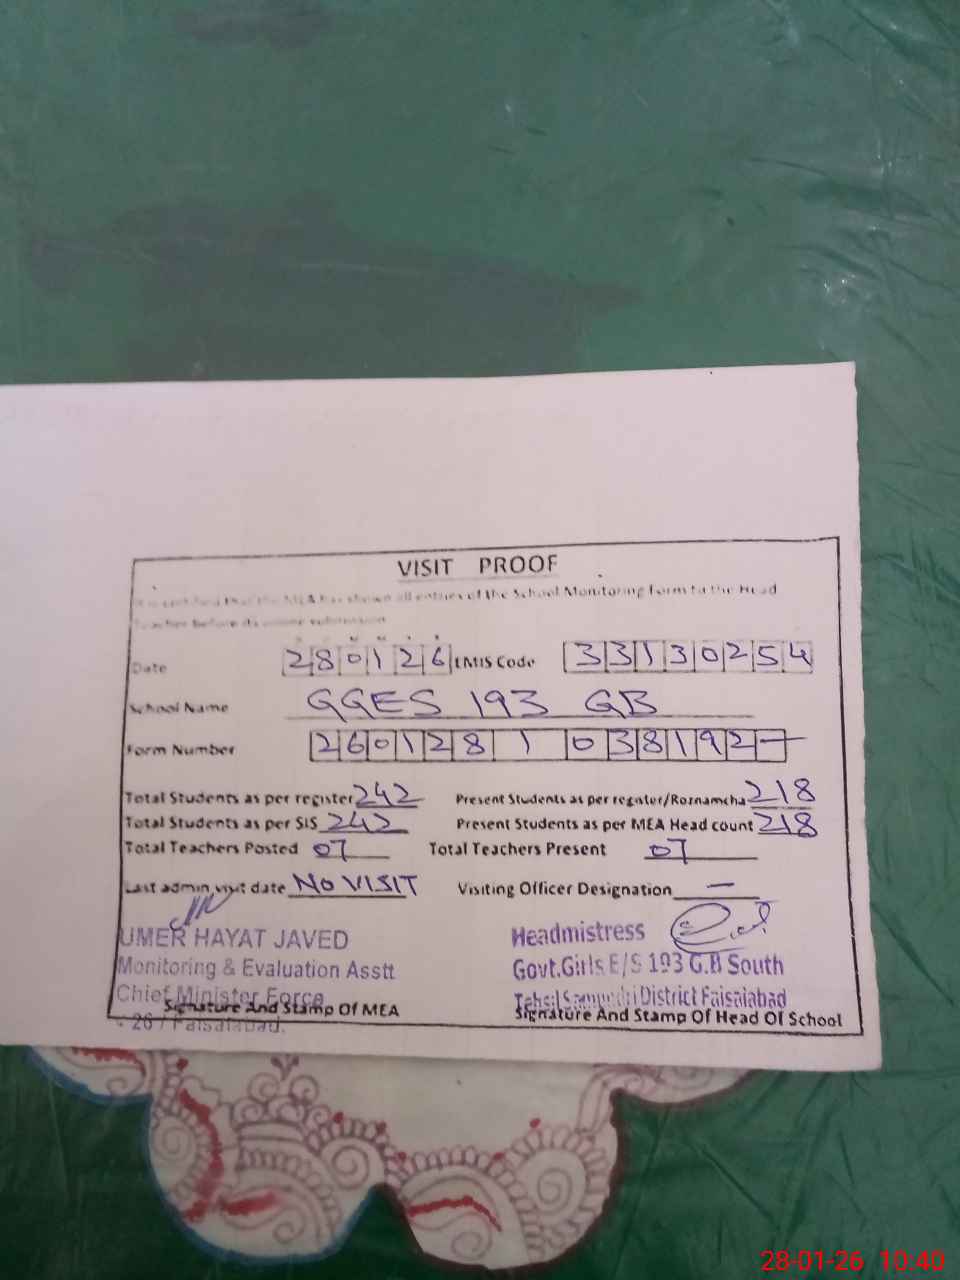 VISIT PROOF
It is certified that the MEA has shown all entries of the School Monitoring Form to the Head
Teacher before its online submission
Date 280126 EMIS Code 33130254
School Name GGES 193 GB
Form Number 260128 1 038192-
Total Students as per register 242 Present Students as per register/Roznamcha 218
Total Students as per SIS 242 Present Students as per MEA Head count 218
Total Teachers Posted 07 Total Teachers Present 07
Last admin visit date NO VISIT Visiting Officer Designation -
UMER HAYAT JAVED
Monitoring & Evaluation Asstt
Chief Minister Force
Signature And Stamp Of MEA
- 267 Faisalabad.
Headmistress
Govt.Girls E/S 193 G.B South
Tehsil Samundri District Faisalabad
Signature And Stamp Of Head Of School
28-01-26 10:40